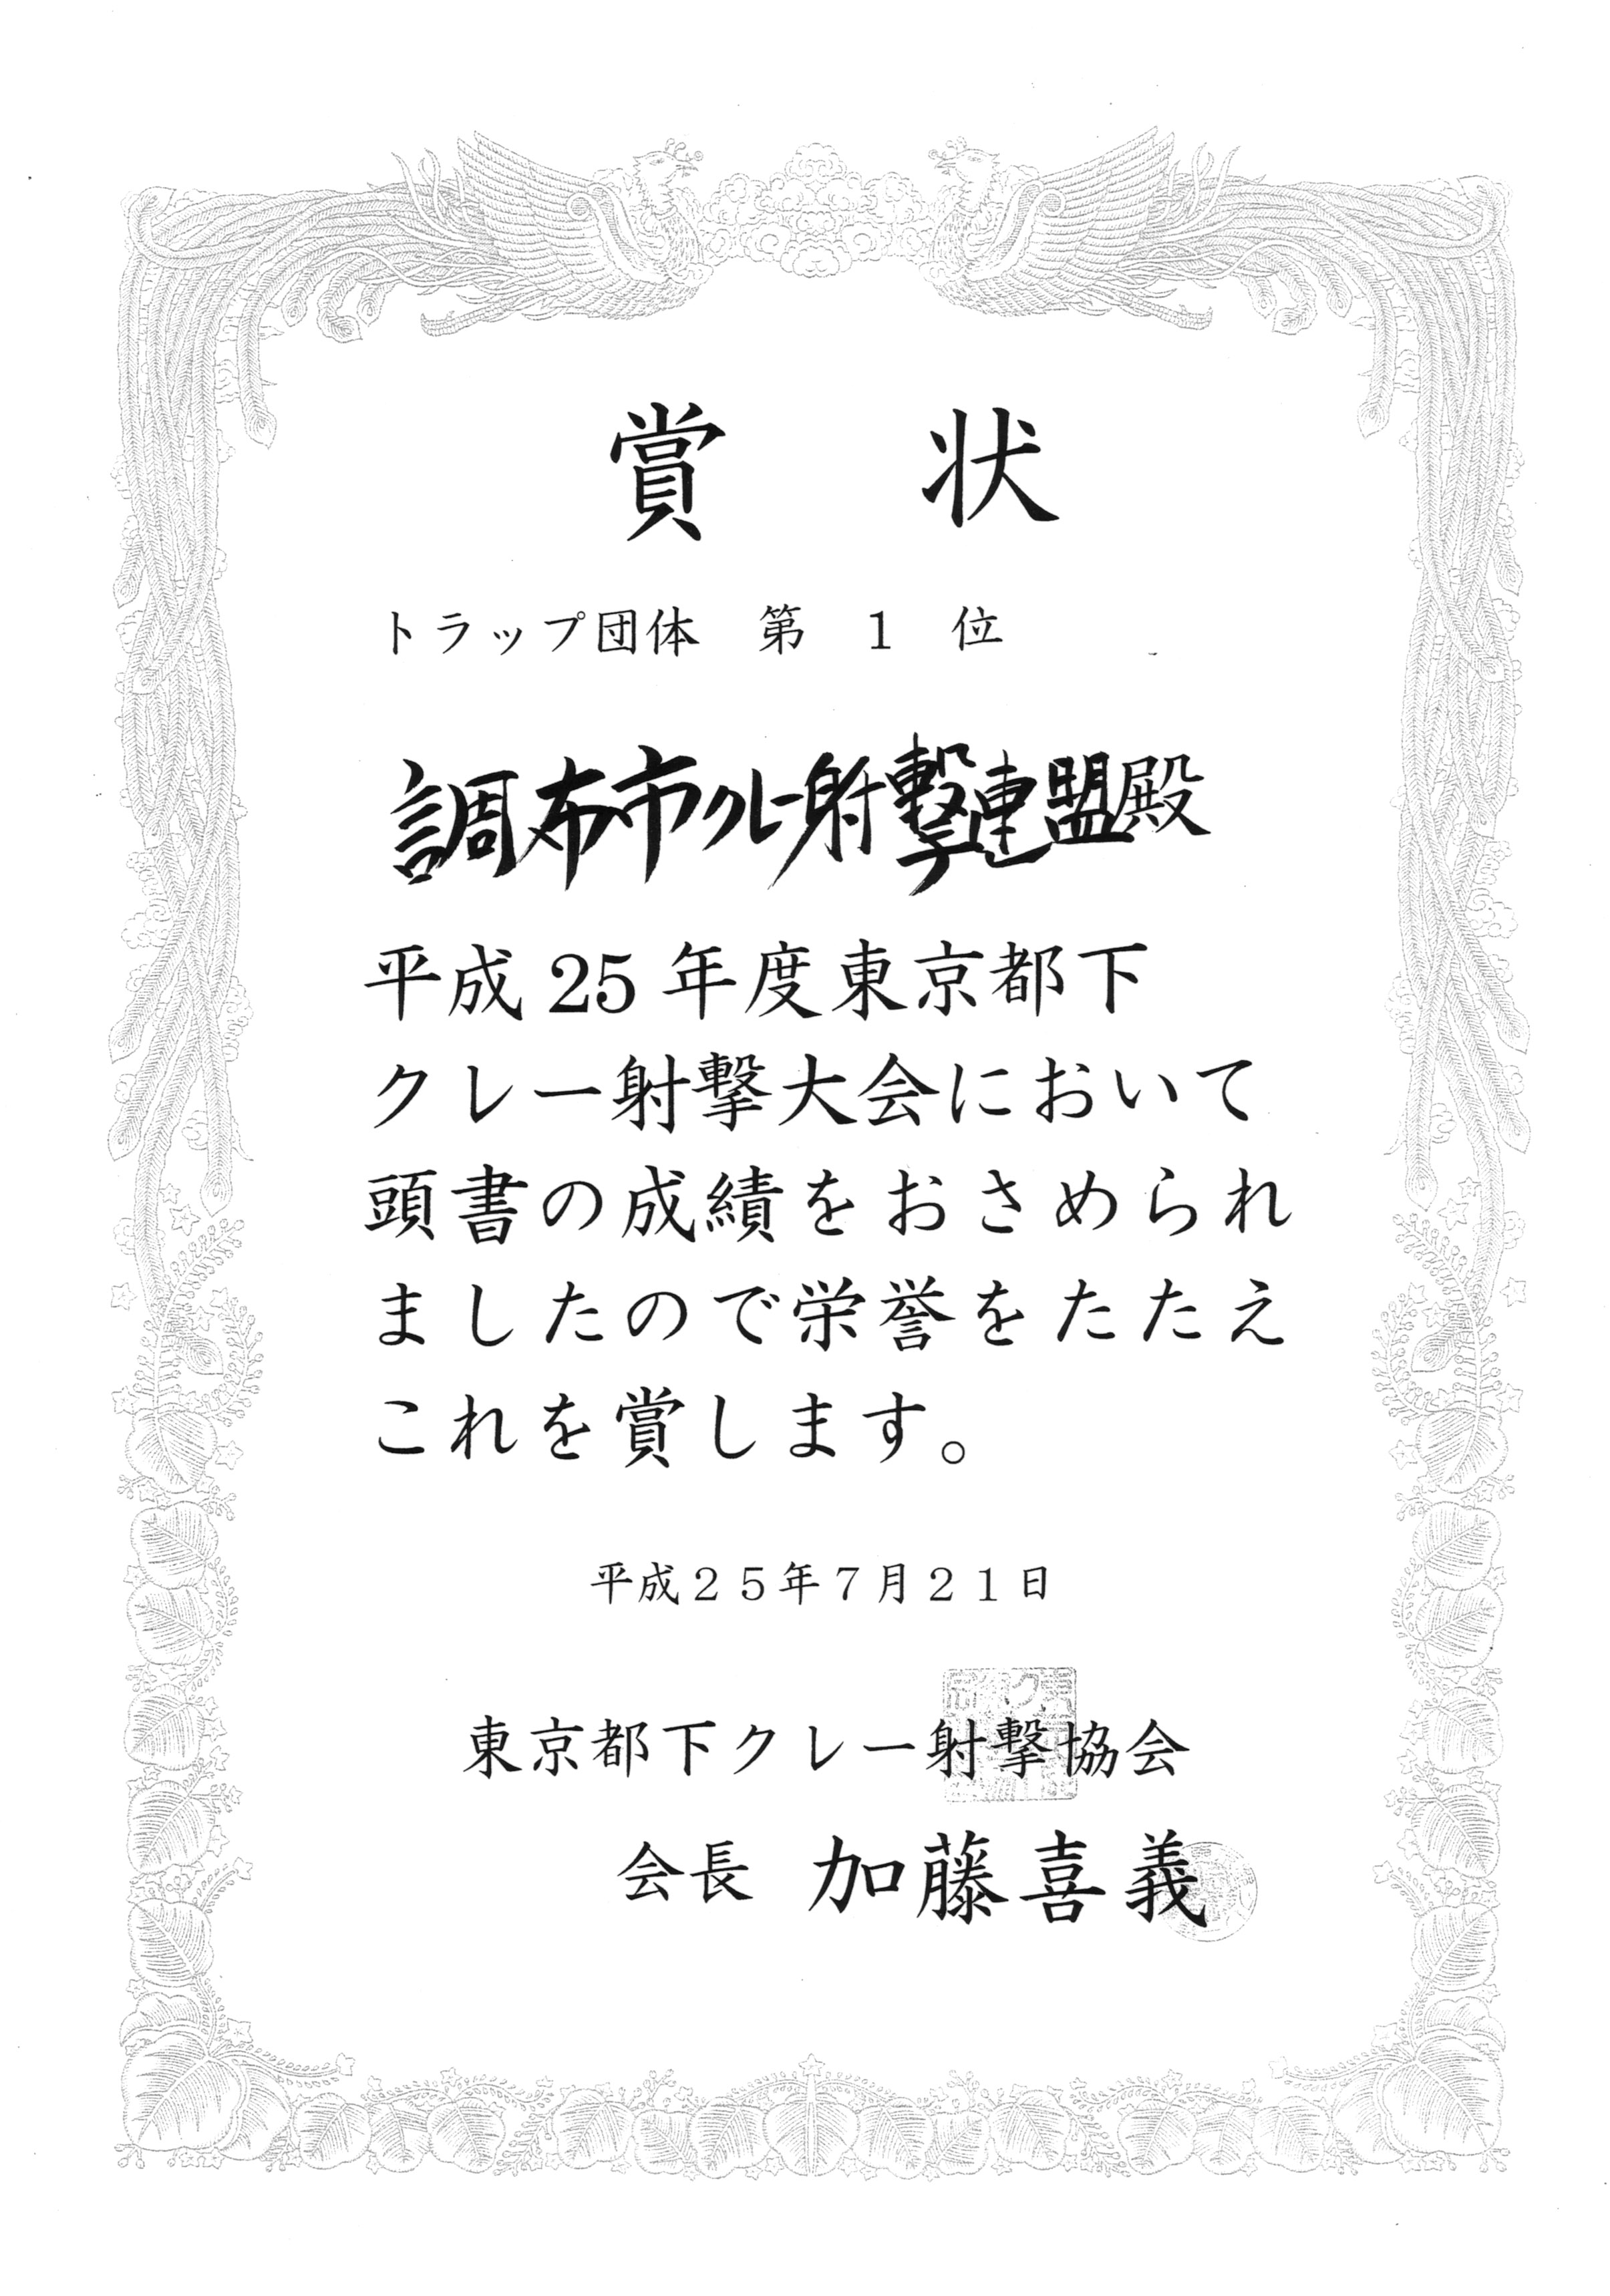 賞 状
トラップ団体 第 1 位
調布市クレー射撃連盟殿
平成 25 年度東京都下
クレー射撃大会において
頭書の成績をおさめられ
ましたので栄誉をたたえ
これを賞します。
平成25年7月21日
東京都下クレー射撃協会
会長 加藤喜義